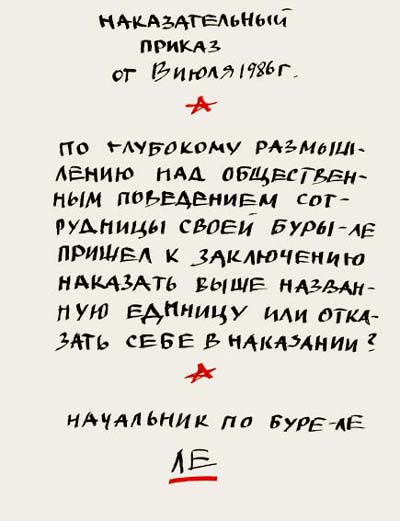 НАКАЗАТЕЛЬНЫЙ
ПРИКАЗ
ОТ 8 ИЮЛЯ 1986 Г.
ПО ГЛУБОКОМУ РАЗМЫШ-
ЛЕНИЮ НАД ОБЩЕСТВЕН-
НЫМ ПОВЕДЕНИЕМ СОТ-
РУДНИЦЫ СВОЕЙ БУРЫ-ЛЕ
ПРИШЕЛ К ЗАКЛЮЧЕНИЮ
НАКАЗАТЬ ВЫШЕ НАЗВАН-
НУЮ ЕДИНИЦУ ИЛИ ОТКА-
ЗАТЬ СЕБЕ В НАКАЗАНИИ?
НАЧАЛЬНИК ПО БУРЕ-ЛЕ
ЛЕ